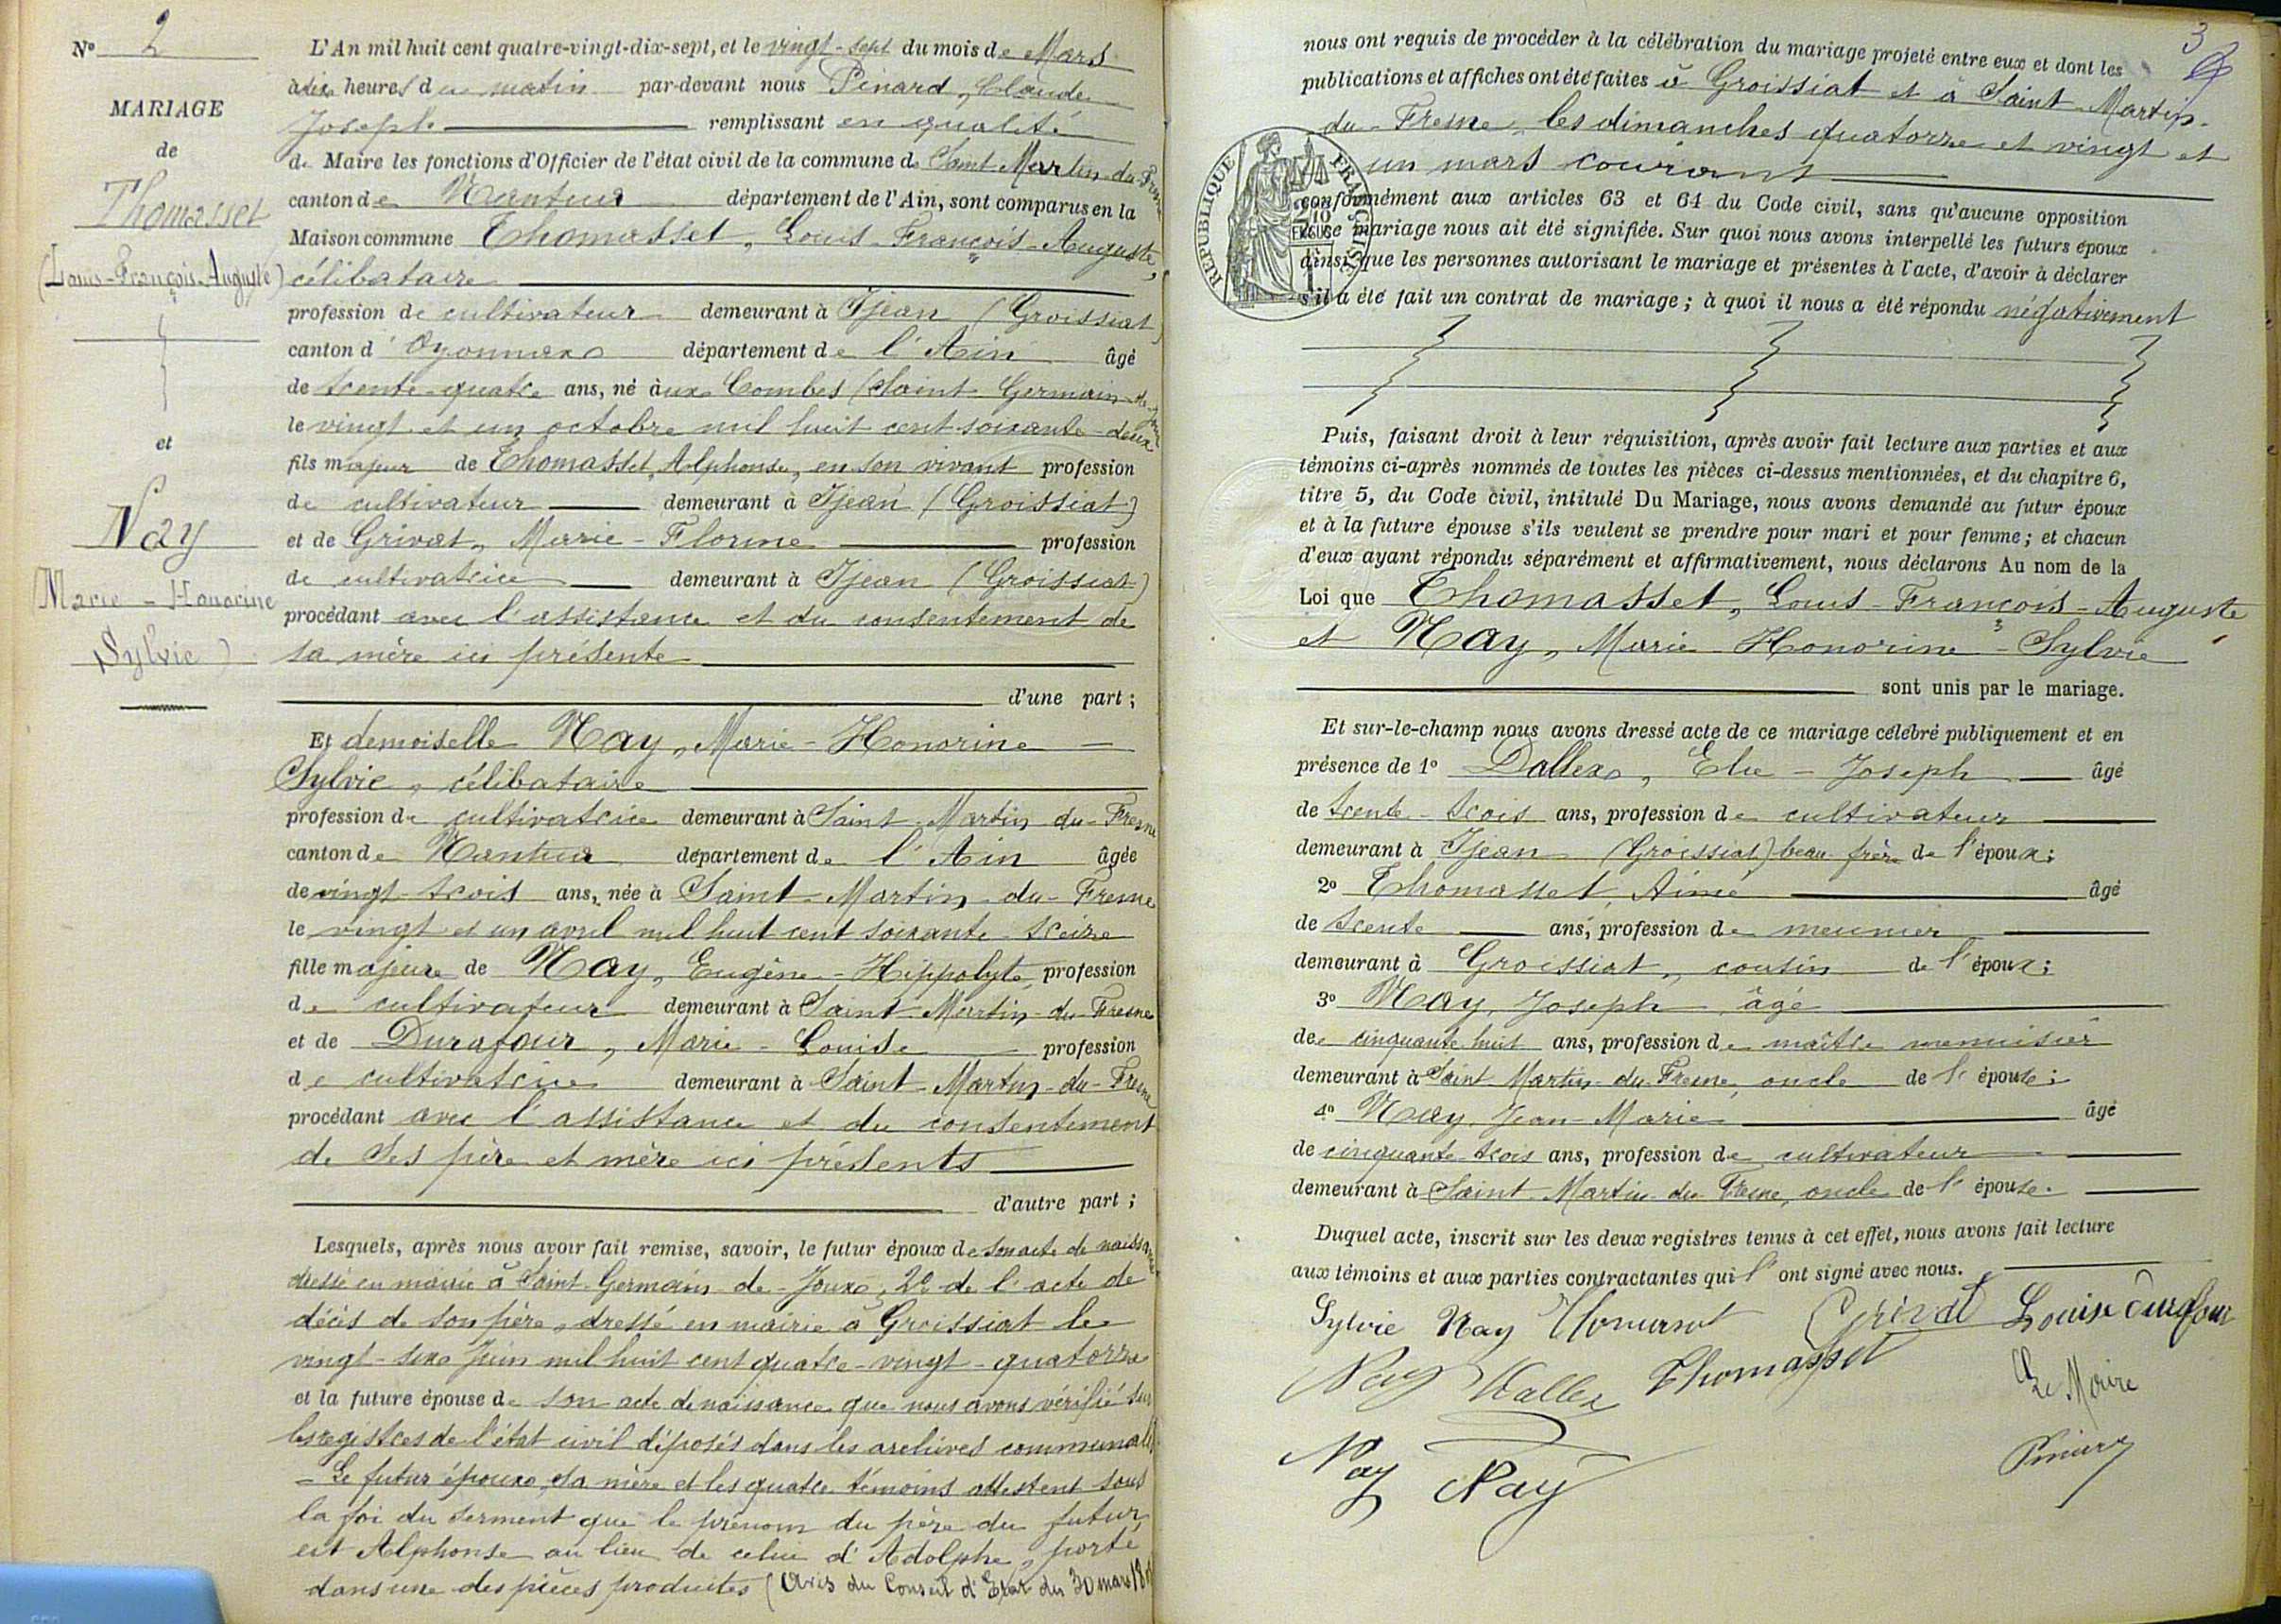 N° 2
MARIAGE
de
Thomasset
(Louis-François-Auguste)
et
Nay
(Marie - Honorine
Sylvie)
L'An mil huit cent quatre-vingt-dix-sept, et le vingt-sept du mois de Mars
à dix heures du matin par-devant nous Pinard, Claude
Joseph remplissant en qualité
de Maire les fonctions d'Officier de l'état civil de la commune de Saint-Martin-du-Fresne
canton de Nantua département de l'Ain, sont comparus en la
Maison commune Thomasset, Louis-François-Auguste,
célibataire
profession de cultivateur demeurant à Ijean (Groissiat)
canton d'Oyonnax département de l'Ain âgé
de trente-quatre ans, né aux Combes (Saint-Germain-de-Joux
le vingt et un octobre mil huit cent soixante-deux
fils majeur de Thomasset, Alphonse, en son vivant profession
de cultivateur demeurant à Ijean (Groissiat)
et de Grivat, Marie-Florine profession
de cultivatrice demeurant à Ijean (Groissiat)
procédant avec l'assistance et du consentement de
sa mère ici présente
d'une part ;
Et demoiselle Nay, Marie-Honorine
Sylvie, célibataire
profession de cultivatrice demeurant à Saint-Martin-du-Fresne
canton de Nantua département de l'Ain âgée
de vingt-trois ans, née à Saint-Martin-du-Fresne
le vingt et un avril mil huit cent soixante-treize
fille majeure de Nay, Eugène-Hippolyte, profession
de cultivateur demeurant à Saint-Martin-du-Fresne
et de Durafour, Marie-Louise profession
de cultivatrice demeurant à Saint-Martin-du-Fresne
procédant avec l'assistance et du consentement
de ses père et mère ici présents
d'autre part ;
Lesquels, après nous avoir fait remise, savoir, le futur époux de son acte de naissance
dressé en mairie à Saint-Germain-de-Joux, 2° de l'acte de
décès de son père, dressé en mairie à Groissiat le
vingt-six Juin mil huit cent quatre-vingt-quatorze
et la future épouse de son acte de naissance que nous avons vérifié sur
les registres de l'état civil déposés dans les archives communales
- Le futur époux, sa mère et les quatre témoins attestent sous
la foi du serment que le prénom du père du futur,
est Alphonse au lieu de celui d'Adolphe, porté
dans une des pièces produites (Avis du Conseil d'Etat du 30 mars
3
nous ont requis de procéder à la célébration du mariage projeté entre eux et dont les
publications et affiches ont été faites à Groissiat et à Saint-Martin-
du-Fresne, les dimanches quatorze et vingt et
un mars courant
RÉPUBLIQUE FRANÇAISE
conformément aux articles 63 et 64 du Code civil, sans qu'aucune opposition
à ce mariage nous ait été signifiée. Sur quoi nous avons interpellé les futurs époux
ainsi que les personnes autorisant le mariage et présentes à l'acte, d'avoir à déclarer
s'il a été fait un contrat de mariage ; à quoi il nous a été répondu négativement
Puis, faisant droit à leur réquisition, après avoir fait lecture aux parties et aux
témoins ci-après nommés de toutes les pièces ci-dessus mentionnées, et du chapitre 6,
titre 5, du Code civil, intitulé Du Mariage, nous avons demandé au futur époux
et à la future épouse s'ils veulent se prendre pour mari et pour femme ; et chacun
d'eux ayant répondu séparément et affirmativement, nous déclarons Au nom de la
Loi que Thomasset, Louis-François-Auguste
et Nay, Marie-Honorine-Sylvie
sont unis par le mariage.
Et sur-le-champ nous avons dressé acte de ce mariage célébré publiquement et en
présence de 1° Dallex, Elie-Joseph âgé
de trente-trois ans, profession de cultivateur
demeurant à Ijean (Groissiat) beau-frère de l'époux ;
2° Thomasset, Aimé âgé
de trente ans, profession de meunier
demeurant à Groissiat, cousin de l'époux ;
3° Nay, Joseph âgé
de cinquante-huit ans, profession de maître menuisier
demeurant à Saint-Martin-du-Fresne, oncle de l'épouse ;
4° Nay, Jean-Marie âgé
de cinquante-trois ans, profession de cultivateur
demeurant à Saint-Martin-du-Fresne, oncle de l'épouse.
Duquel acte, inscrit sur les deux registres tenus à cet effet, nous avons fait lecture
aux témoins et aux parties contractantes qui l'ont signé avec nous.
Sylvie Nay Grivat Louise Durafour
Nay Dallex Thomasset
Le Maire
Nay Nay Pinard